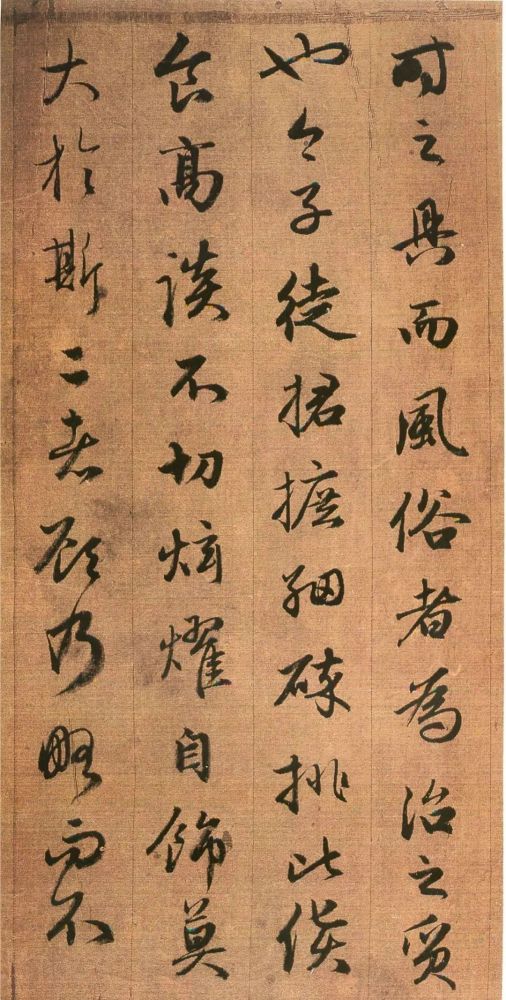 时之具而風俗者為治之質
也今子徒捃摭細碎排比儀
食高談不切炫耀自飾莫
大於斯二者顧乃略而不